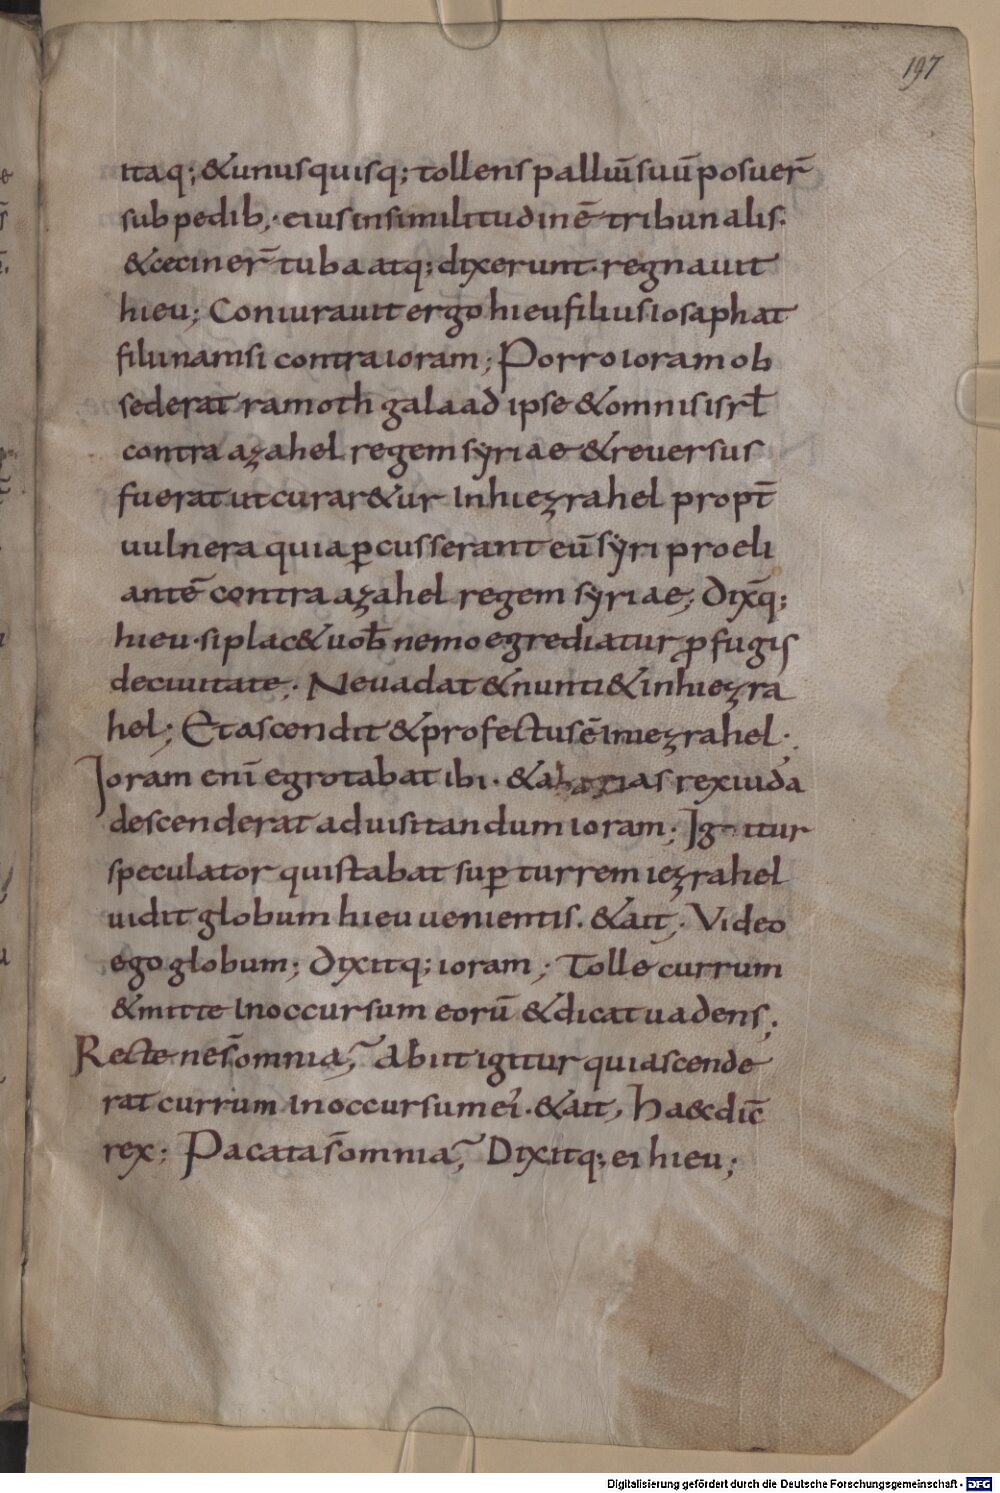 197
itaq; & unusquisq; tollens palliū suū posuer̄
sub pedib; eius in similitudinē tribunalis.
& ceciner̄ tuba atq; dixerunt. regnauit
hieu; Coniurauit ergo hieu filius iosaphat
filii namsi contra ioram; Porro ioram ob
sederat ramoth galaad ipse & omnis isrł
contra azahel regem syriae & reuersus
fuerat ut curar&ur in hiezrahel propt̄
uulnera quia ꝑcusserant eū syri proeli
antē contra azahel regem syriae; Dix̄q;
hieu. si plac& uob̄ nemo egrediatur ꝓfugis
de ciuitate; Ne uadat & nunti& in hiezra
hel; Et ascendit & profectus ē in iezrahel;
Ioram eni̅ egrotabat ibi. & ahazias rex iuda
descenderat ad uisitandum ioram; Igitur
speculator qui stabat suꝑ turrem iezrahel
uidit globum hieu uenientis. & ait; Video
ego globum; Dixitq; ioram; Tolle currum
& mitte in occursum eorū & dicat uadens;
Recte ne s̄ omnia? Abiit igitur qui ascende
rat currum in occursum ei. & ait, haec dic̄
rex; Pacata s̄ omnia? Dixitq; ei hieu;
Digitalisierung gefördert durch die Deutsche Forschungsgemeinschaft - DFG